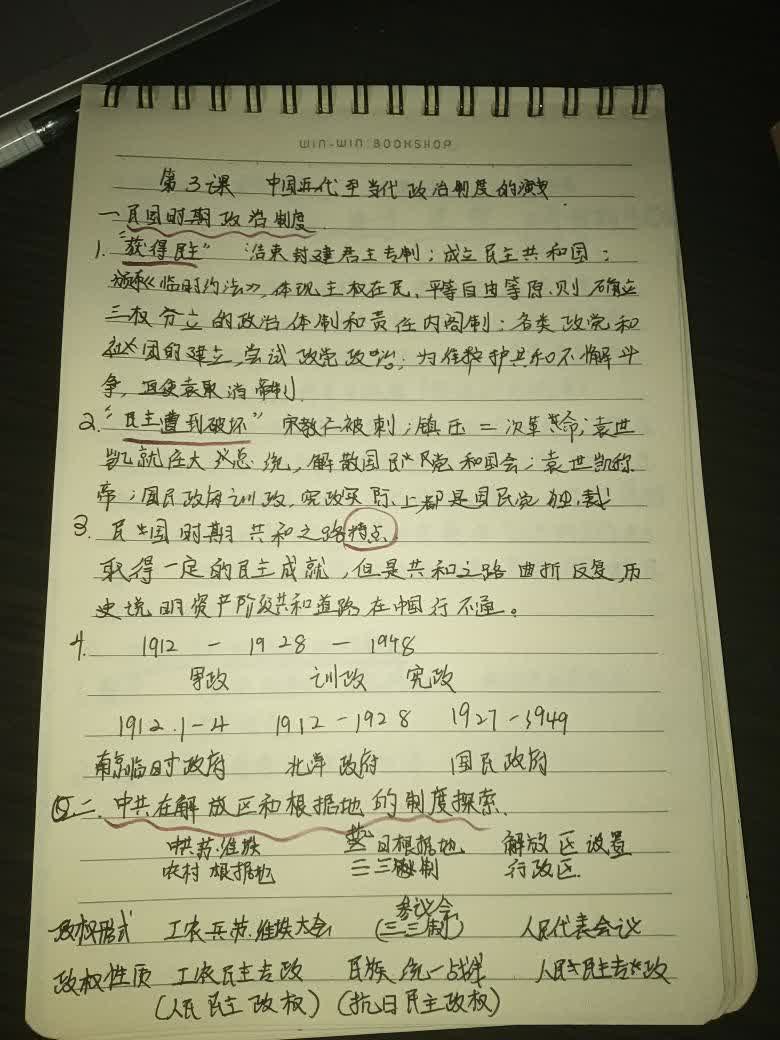 WIN-WIN BOOKSHOP
第3课 中国近代至当代政治制度的演变
一民国时期政治制度
1. "获得民主" 结束封建君主专制;成立民主共和国;
颁布《临时约法》,体现主权在民、平等自由等原则 确立
三权分立的政治体制和责任内阁制;各类政党和
社团的建立,尝试政党政治;为维护共和不懈斗
争,迫使袁取消帝制
2. "民主遭到破坏" 宋教仁被刺;镇压二次革命;袁世
凯就任大总统,解散国民党和国会;袁世凯称
帝;国民政府训政、宪政实际上都是国民党独裁
3. 民国时期共和之路特点
取得一定的民主成就,但是共和之路曲折反复,历
史说明资产阶级共和道路在中国行不通。
4. 1912 - 1928 - 1948
军政 训政 宪政
1912.1-4 1912-1928 1927-1949
南京临时政府 北洋政府 国民政府
二.中共在解放区和根据地的制度探索.
中共苏维埃 抗日根据地 解放区设置
农村根据地 三三制 行政区.
参议会
政权形式 工农兵苏维埃大会 (三三制) 人民代表会议
政权性质 工农民主专政 民族统一战线 人民民主专政
(人民民主政权) (抗日民主政权)